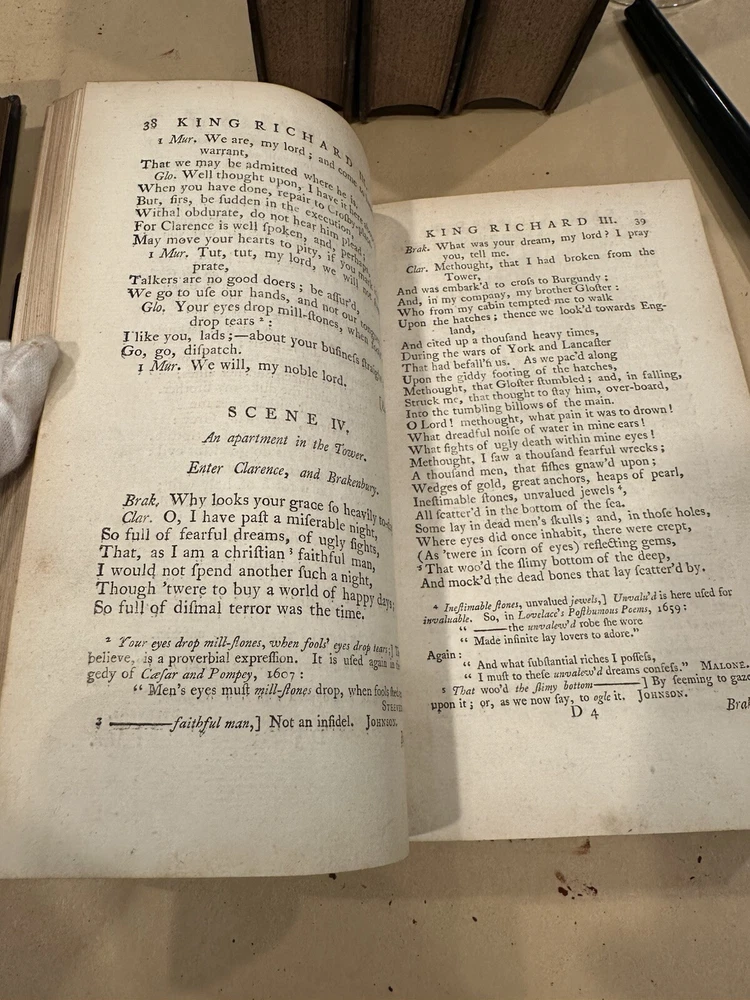 38 KING RICHARD III.
1 Mur. We are, my lord; and come
warrant,
That we may be admitted where he is.
Glo. Well thought upon, I have it here
When you have done, repair to Croſby-place.
But, ſirs, be ſudden in the execution,
Withal obdurate, do not hear him plead;
For Clarence is well ſpoken, and, perhaps,
May move your hearts to pity, if you mark
1 Mur. Tut, tut, my lord, we will not
prate,
Talkers are no good doers; be aſſur'd,
We go to uſe our hands, and not our tongues.
Glo. Your eyes drop mill-ſtones, when fools'
drop tears ²:
I like you, lads;—about your buſineſs ſtraight;
Go, go, diſpatch.
1 Mur. We will, my noble lord.
SCENE IV.
An apartment in the Tower.
Enter Clarence, and Brakenbury.
Brak. Why looks your grace ſo heavily to-day?
Clar. O, I have paſt a miſerable night,
So full of fearful dreams, of ugly ſights,
That, as I am a chriſtian ³ faithful man,
I would not ſpend another ſuch a night,
Though 'twere to buy a world of happy days;
So full of diſmal terror was the time.
² Your eyes drop mill-ſtones, when fools' eyes drop tears:]
believe, is a proverbial expreſſion. It is uſed again in
gedy of Cæſar and Pompey, 1607:
“ Men's eyes muſt mill-ſtones drop, when fools
³ ———faithful man,] Not an infidel. JOHNSON.
KING RICHARD III. 39
Brak. What was your dream, my lord? I pray
you, tell me.
Clar. Methought, that I had broken from the
Tower,
And was embark'd to croſs to Burgundy;
And, in my company, my brother Gloſter:
Who from my cabin tempted me to walk
Upon the hatches; thence we look'd towards Eng-
land,
And cited up a thouſand heavy times,
During the wars of York and Lancaſter
That had befall'n us. As we pac'd along
Upon the giddy footing of the hatches,
Methought, that Gloſter ſtumbled; and, in falling,
Struck me, that thought to ſtay him, over-board,
Into the tumbling billows of the main.
O Lord! methought, what pain it was to drown!
What dreadful noiſe of water in mine ears!
What ſights of ugly death within mine eyes!
Methought, I ſaw a thouſand fearful wrecks;
A thouſand men, that fiſhes gnaw'd upon;
Wedges of gold, great anchors, heaps of pearl,
Ineſtimable ſtones, unvalued jewels ⁴,
All ſcatter'd in the bottom of the ſea.
Some lay in dead men's ſkulls; and, in thoſe holes,
Where eyes did once inhabit, there were crept,
(As 'twere in ſcorn of eyes) reflecting gems,
⁵ That woo'd the ſlimy bottom of the deep,
And mock'd the dead bones that lay ſcatter'd by.
⁴ Ineſtimable ſtones, unvalued jewels,] Unvalu'd is here uſed for
invaluable. So, in Lovelace's Poſthumous Poems, 1659:
“ ——the unvalew'd robe ſhe wore
“ Made infinite lay lovers to adore.”
Again:
“ And what ſubſtantial riches I poſſeſs,
“ I muſt to theſe unvalew'd dreams confeſs.” MALONE.
⁵ That woo'd the ſlimy bottom———] By ſeeming to gaze
upon it; or, as we now ſay, to ogle it. JOHNSON.
D 4